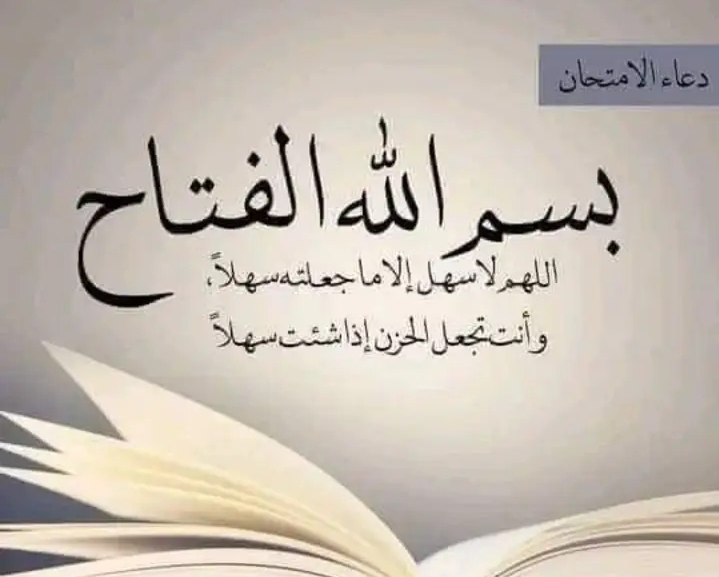 دعاء الامتحان
بسم الله الفتاح
اللهم لا سهل إلا ما جعلته سهلاً،
وأنت تجعل الحزن إذا شئت سهلاً